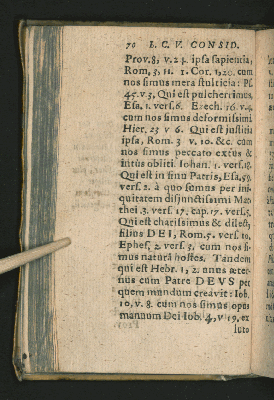 70 L. C. V. CONSID.
Prov. 8, v. 24. ipsa sapientia,
Rom, 3, 11. 1. Cor. 1, 20. cum
nos simus mera stultitia: Ps.
45. v 3. Qui est pulcherrimus,
Esa, 1. vers. 6. Ezech. 16. v. 4.
cum nos simus deformissimi
Hier. 23 v 6. Qui est justitia
ipsa, Rom. 3 v. 10. &c. cum
nos simus peccato extùs &
intùs obliti. Iohan. 1. vers. 18.
Qui est in sinu Patris, Esa, 59.
vers. 2. à quo semus per ini-
quitatem disjunctissimi Mat-
thei 3. vers 17. cap. 17. vers. 5.
Qui est charissimus & dilectꝰ
filius DEI, Rom, 5. vers. 10,
Ephes, 2. vers. 3, cum nos si-
mus naturâ hostes. Tandem
qui est Hebr. 1, 2. unus æter-
nus cum Patre DEVS per
quem mundum creavit: Iob.
10, v. 8. cum nos simus opus
manuum Dei Iob. 4, v 19, ex
luto